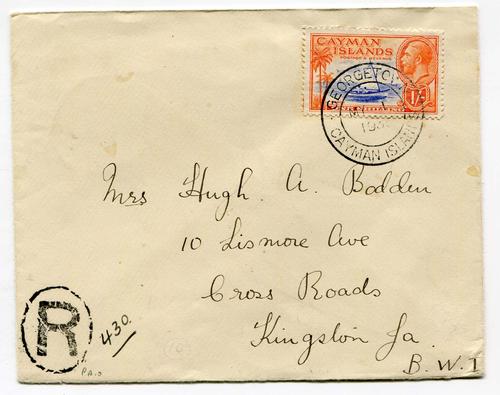 CAYMAN
ISLANDS
POSTAGE & REVENUE
1/-
GEORGETOWN
CAYMAN ISLANDS
Mrs Hugh A. Bodden
10 Lismore Ave
Cross Roads
Kingston Ja.
B.W.I
R
430